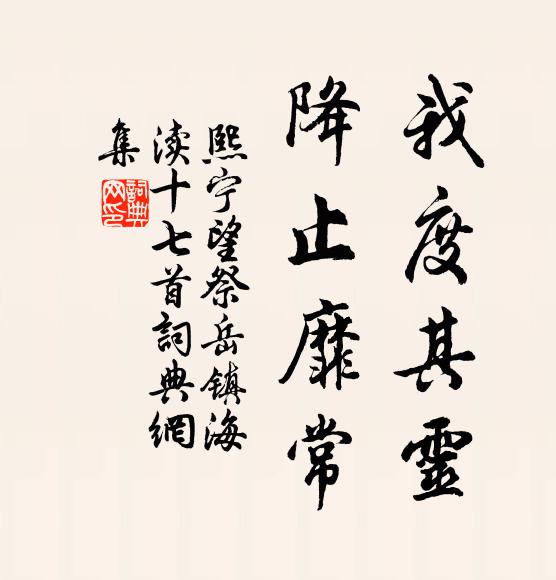 我度其靈
降止靡常
熙宁望祭岳镇海
渎十七首詞典網
集
詞典
网印